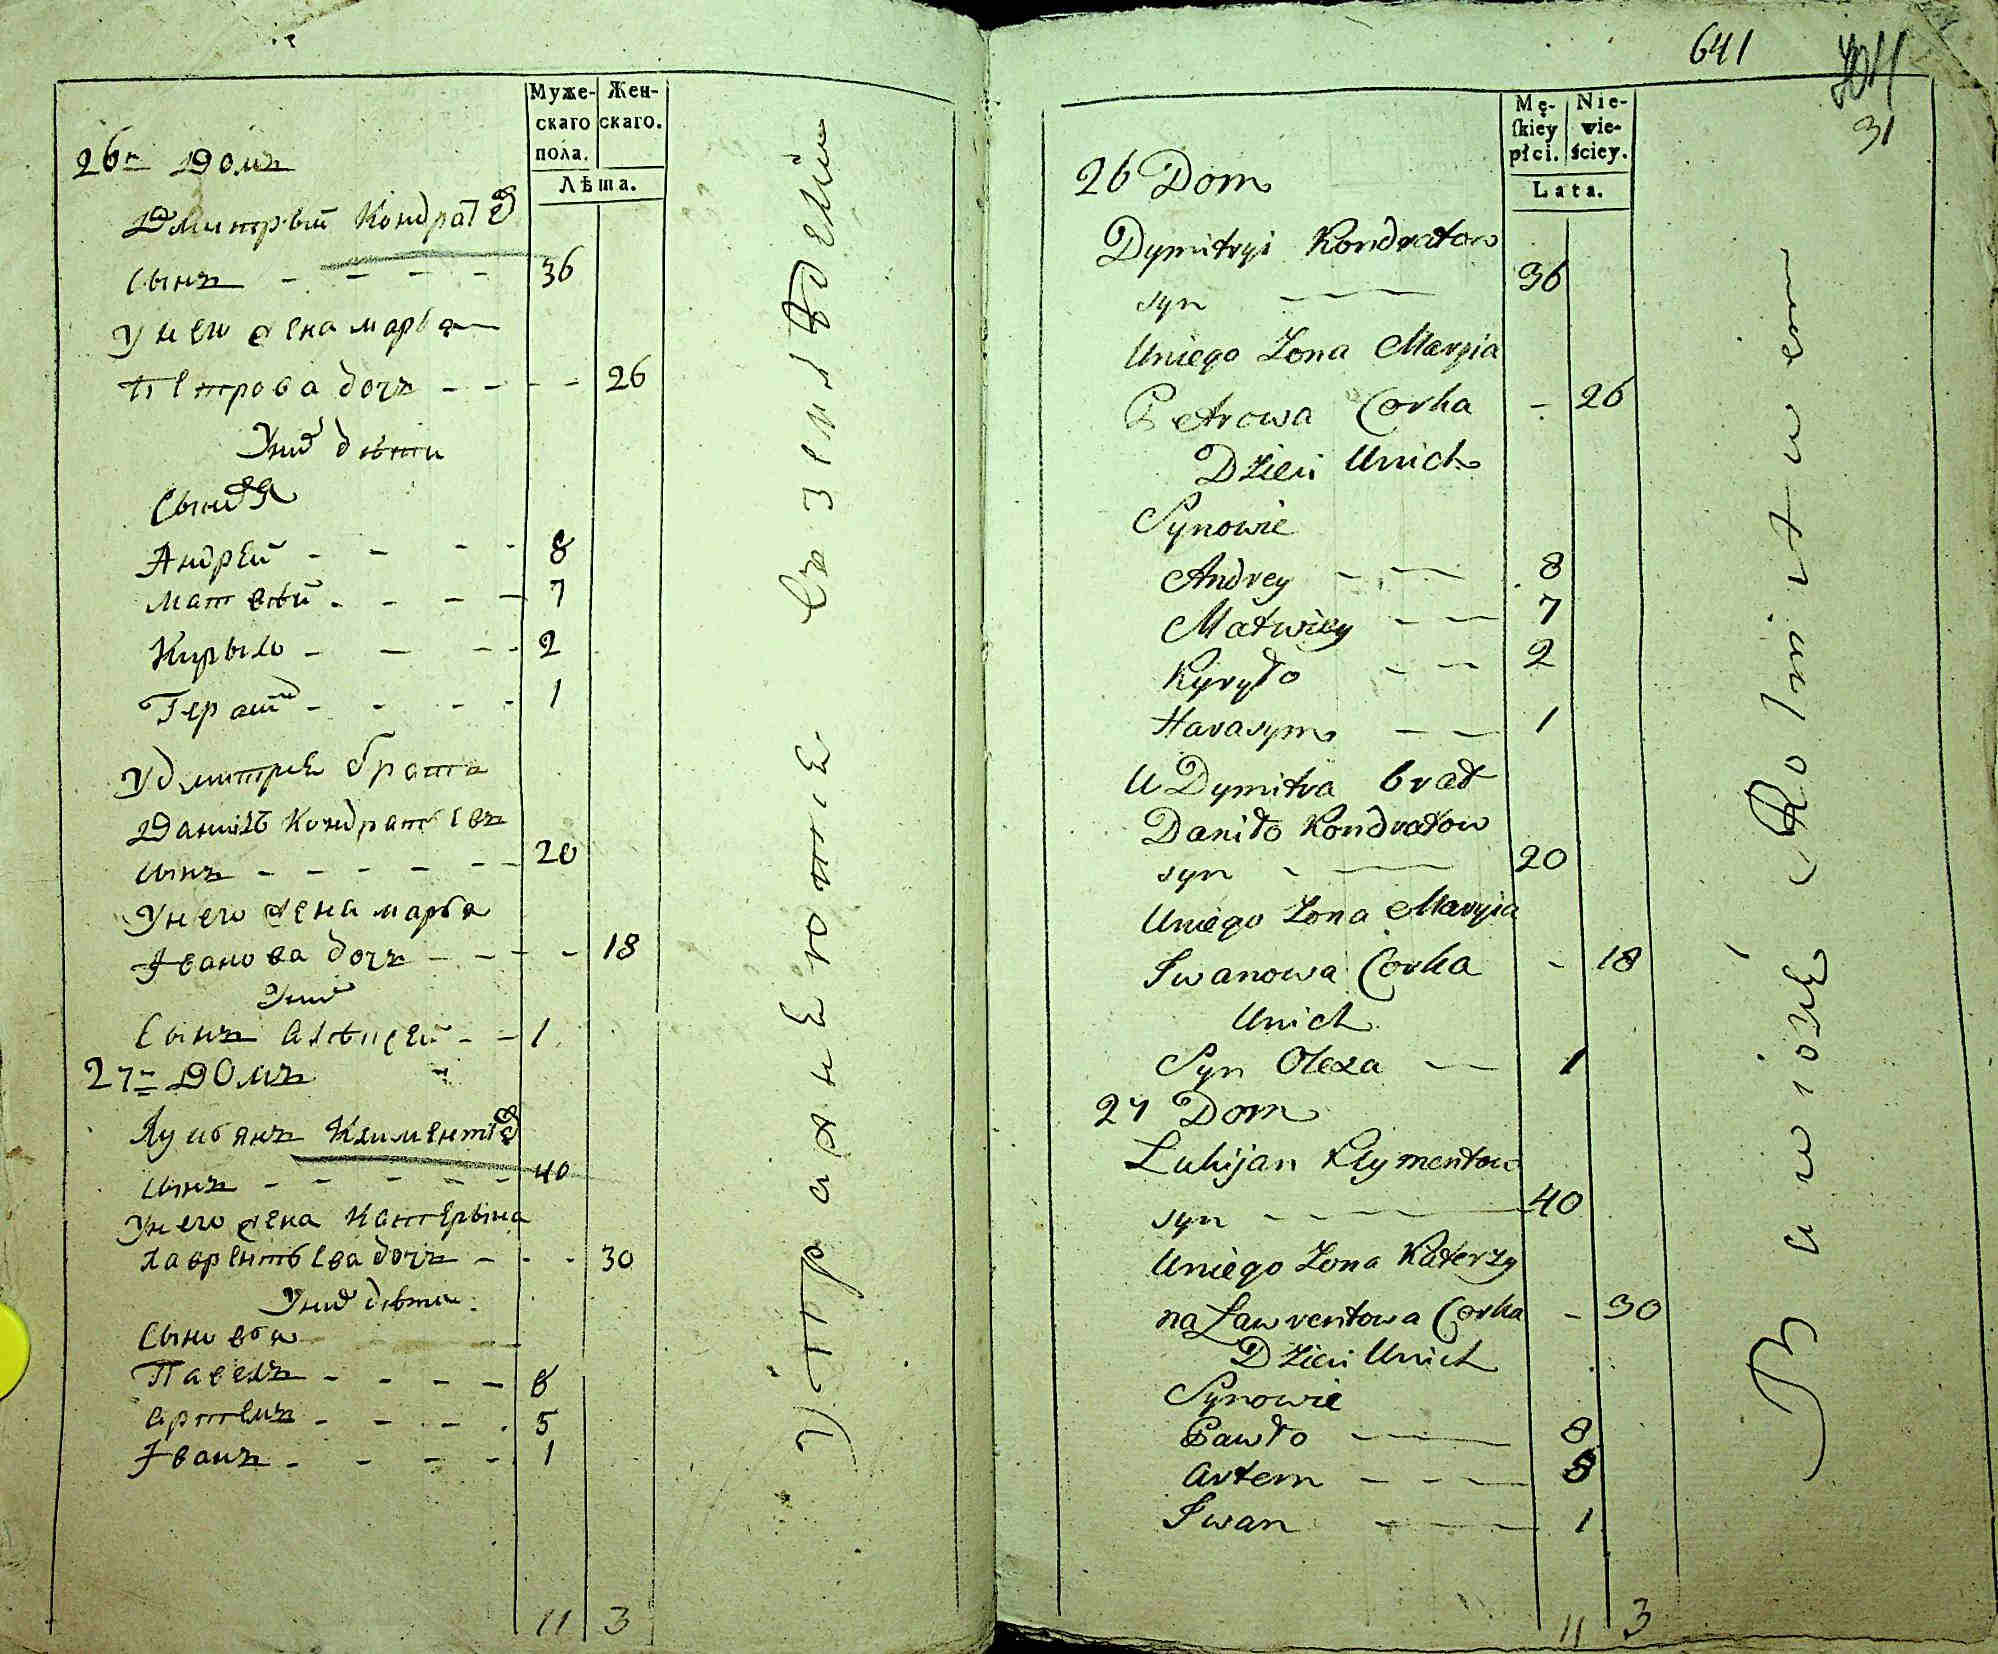 Муже-
скаго
пола.
Жен-
скаго.
Лѣта.
26й Домъ
Дмитрый Кондратѣв
сынъ - - - - 36
У него жена марья
Петрова дочь - - - - 26
У них дѣти
Сыновя
Андрей - - - - 8
Матвѣй - - - - 7
Кирыло - - - - 2
Герасим - - - - 1
У дмитрия брат
Данило Кондратьевъ
сынъ - - - - - 20
У него жена марья
Иванова дочь - - - - 18
У них
Сынъ алѣксей - - 1
27й Домъ
Лукьянъ Климентѣв
сынъ - - - - - 40
У него жена Катерына
лаврентьева дочь - - - 30
У них дѣти
Сыновья
Павелъ - - - - 8
артемъ - - - - 5
Иванъ - - - - 1
11 3
Упражнение въ земледелии
641
31
Mę-
skiey
płci.
Nie-
wie-
ściey.
Lata.
26 Dom
Dymitryi Kondratow
syn - - - 36
Uniego Zona Maryia
Petrowa Corka - 26
Dzieci Unich
Synowie
Andrey - - - 8
Matwiey - - - 7
Kyryło - - - 2
Harasym - - 1
U Dymitra brat
Daniło Kondratow
syn - - 20
Uniego Zona Maryia
Iwanowa Corka - 18
Unich
Syn Olexa - - 1
27 Dom
Lukijan Klymentow
syn - - - - 40
Uniego Zona Katerzy
na Lawrentowa Corka - 30
Dzieci Unich
Synowie
Pawło - - - 8
Artem - - - 5
Iwan - - - 1
11 3
Bawiące Rolnictwem